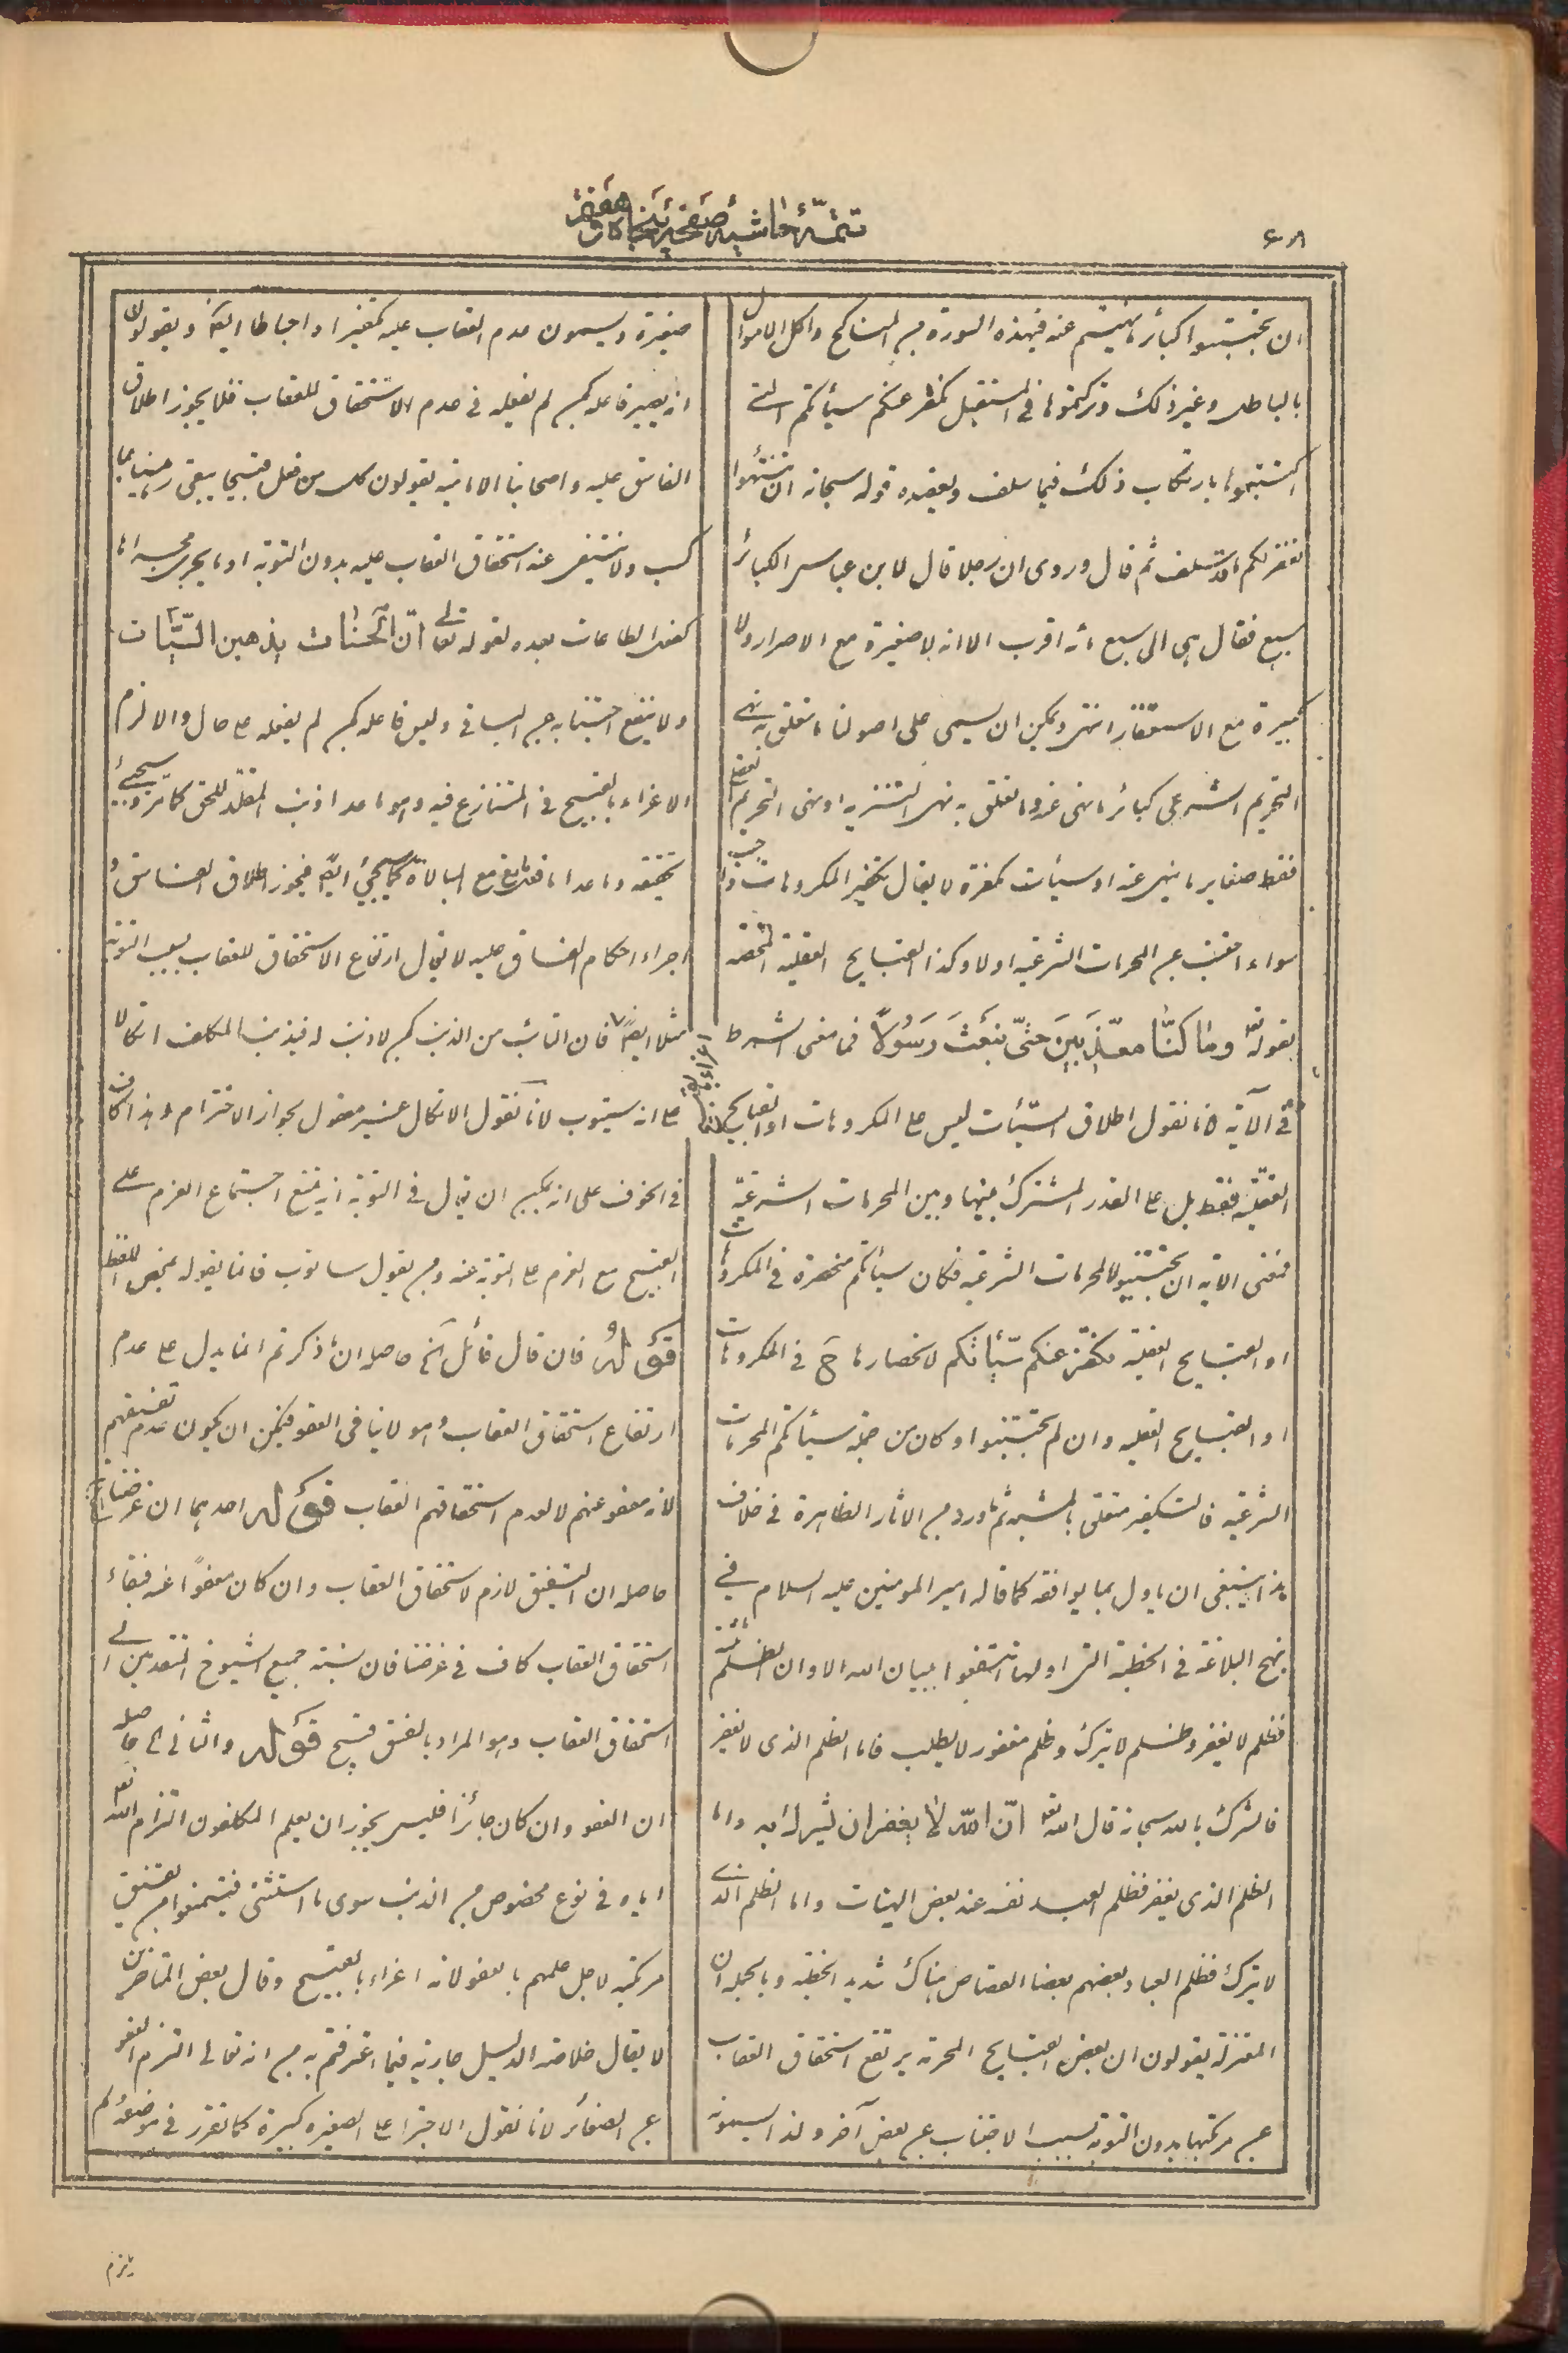 تتمّة حاشية صفحة پنجاه و هفتم
٤٨
ان تجتنبوا كبائر ما نهيتم عنه فى هذه السورة من المناكح واكل الاموال
بالباطل وغير ذلك وتركتموها فى المستقبل كفّر عنكم سيأتكم التى
اكتسبتموها بارتكاب ذلك فيما سلف ويعضده قوله سبحانه ان تنتهوا
يغفر لكم ما قد سلف ثم قال وروى ان رجلا قال لابن عباس الكبائر
سبع فقال هى الى سبع مائة اقرب الا انه لا صغيرة مع الاصرار ولا
كبيرة مع الاستغفار انتهى ويمكن ان يسمى على اصولنا ما تعلق به نهى
التحريم الشرعى كبائر ما نهى عنه وما تعلق به نهى التنزيه او نهى التحريم العقلى
فقط صغاير ما نهى عنه او سيئات مكفرة لا يقال تكفير المكروهات واجب
سواء اجتنب عن المحرمات الشرعية اولا وكذا القبايح العقلية المحضة
بقوله تع وما كنّا معذّبين حتّى نبعث رسولاً فما معنى الشرط
فى الآية لانا نقول اطلاق السيّئات ليس على المكروهات او القبايح
العقلية فقط بل على القدر المشترك بينها وبين المحرمات الشرعيّة
فمعنى الآية ان تجتنبوا المحرمات الشرعية فكان سيأتكم منحصرة فى المكروهات
او القبايح العقلية نكفّر عنكم سيّأتكم لانحصارها ح فى المكروهات
او القبايح العقلية وان لم تجتنبوا وكان من جملة سيأتكم المحرمات
الشرعية فالتكفير متعلق بالمشية ثم ما ورد من الاثار الظاهرة فى خلاف
هذا ينبغى ان ياول بما يوافقه كما قاله امير المومنين عليه السلام فى
نهج البلاغة فى الخطبة التى اولها انتفعوا ببيان الله الا وان الظلم ثلثة
فظلم لا يغفر وظلم لا يترك وظلم مغفور لا يطلب فاما الظلم الذى لا يغفر
فالشرك بالله سبحانه قال الله تع انّ الله لا يغفر ان يشرك به واما
الظلم الذى يغفر فظلم العبد نفسه عند بعض الهنات واما الظلم الذى
لا يترك فظلم العباد بعضهم بعضا القصاص هناك شديد الخطبة وبالجملة ان
المعتزلة يقولون ان بعض القبايح المحرمة يرتفع استحقاق العقاب
عن مرتكبها بدون التوبة بسبب الاجتناب عن بعض آخر ولذا يسمونه
صغيرة ويسمون عدم العقاب عليه تكفيرا او احباطا ايضا ويقولون
انه يصير فاعله كمن لم يفعله فى عدم الاستحقاق للعقاب فلا يجوز اطلاق
الفاسق عليه واصحابنا الامامية يقولون كل من فعل قبيحا يبقى رهينا بما
كسب ولا ينتفى عنه استحقاق العقاب عليه بدون التوبة او ما يجرى مجريها
كفعل الطاعات بعده لقوله تعالى انّ الحسنات يذهبن السيّئات
ولا ينفع اجتنابه عن الباقى وليس فاعله كمن لم يفعله على حال والا لزم
الاغراء بالقبيح فى المتنازع فيه وهو ما عدا ذنب المقلد للحق كما مر وسيجئ
تحقيقه وما عدا ما فعل مع المبالاة كما سيجئ ايضا فيجوز اطلاق الفاسق و
اجراء احكام الفساق عليه لا يقال ارتفاع الاستحقاق للعقاب بسبب التوبة
اغراء بالقبيح
مثلا ايضا فان التائب من الذنب كمن لا ذنب له فيذنب المكلف اتكالا
على انه سيتوب لانا نقول الاتكال غير معقول بجواز الاخترام وهذا كاف
فى الخوف على انه يمكن ان يقال فى التوبة انه يمتنع اجتماع العزم على
القبيح مع العزم على التوبة عنه ومن يقول سأتوب فانما يقوله بمحض اللفظ
قوله فان قال قائل آه حاصله ان ما ذكرتم انما يدل على عدم
ارتفاع استحقاق العقاب وهو لا ينافى العفو فيمكن ان يكون عدم تفسيقهم
لانه معفو عنهم لا لعدم استحقاقهم العقاب قوله احدهما ان غرضنا
حاصله ان التفسيق لازم لاستحقاق العقاب وان كان معفوّا عنه فبقاء
استحقاق العقاب كاف فى غرضنا فان نسبة جميع الشيوخ المتقدمين الى
استحقاق العقاب وهو المراد بالفسق قبيح قوله والثانى الى حاصله
ان العفو وان كان جائزاً فليس يجوز ان يعلم المكلفون التزام الله تع
اياه فى نوع مخصوص من الذنب سوى ما استثنى فيمتنعوا من تفسيق
مرتكبه لاجل علمهم بالعفو لانه اغراء بالقبيح وقال بعض المتاخرين
لا يقال خلاصة الدليل جارية فيما اعترفتم به من انه تعالى التزم العفو
عن الصغائر لانا نقول الاجتراء على الصغيرة كبيرة كما تقرر فى موضعه ولم
يلزم